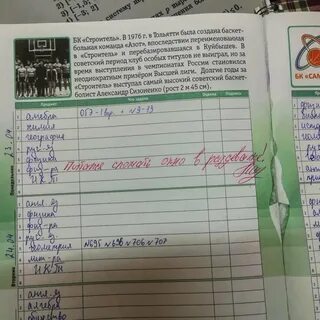 БК «Строитель». В 1976 г. в Тольятти была создана баскет-
больная команда «Азот», впоследствии переименованная
в «Строитель» и перебазировавшаяся в Куйбышев. В
советский период клуб особых титулов не выиграл, но за
время выступления в чемпионатах России становился
неоднократным призёром Высшей лиги. Долгие годы за
«Строитель» выступал самый высокий советский баскет-
болист Александр Сизоненко (рост 2 м 45 см).
БК «САМ
Предмет Что задано Оценка Подпись
Понедельник 23.04
алгебра
химия
география
рус. яз
физика
физ-ра
И.К.Т
окно в раздевалке.
Вторник 24.04
англ. яз
физика
физ-ра
рус. яз
геометрия №695 №706 №707
лит-ра
И.К.Т
англ. яз
алгебра
общество